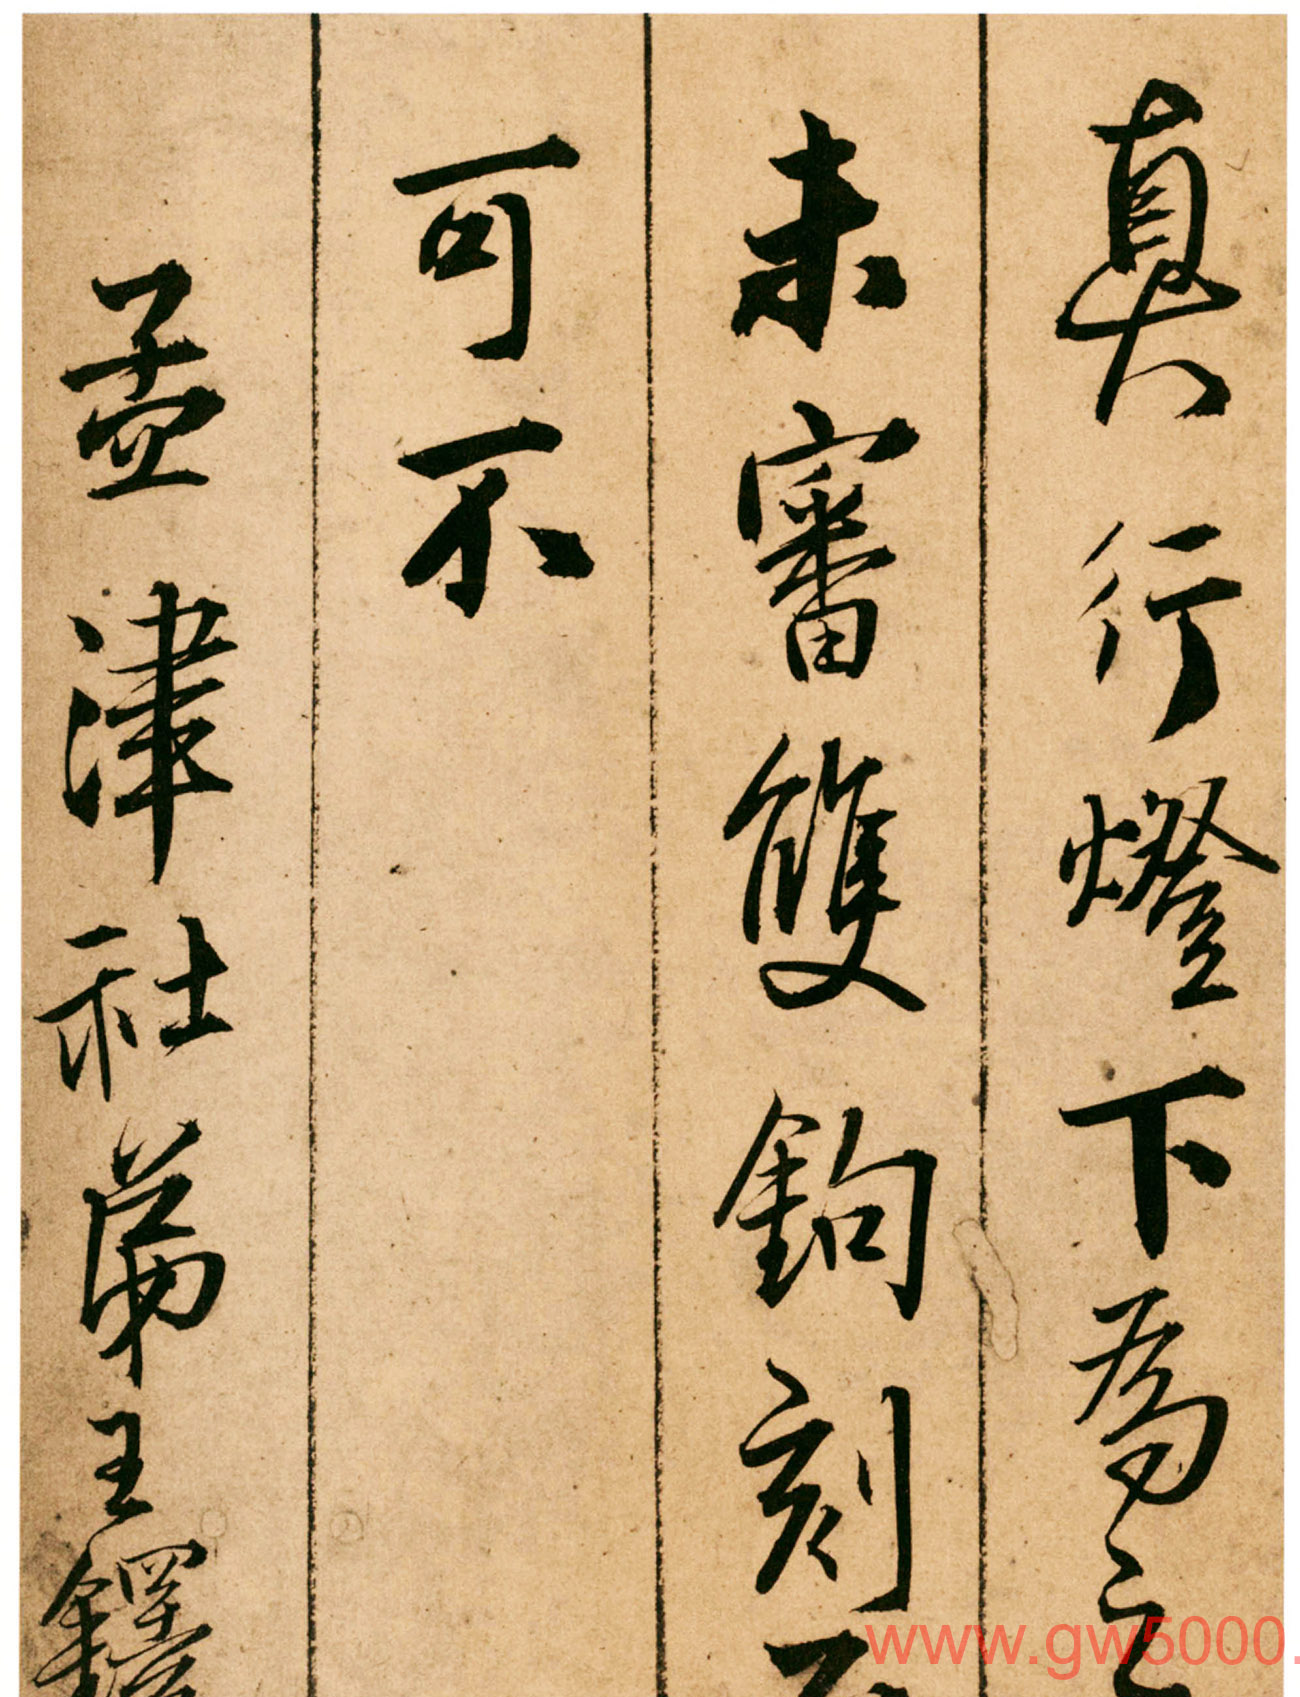 真行燈下為之
未審雙鉤刻
可不
孟津社弟王鐸
www.gw5000.